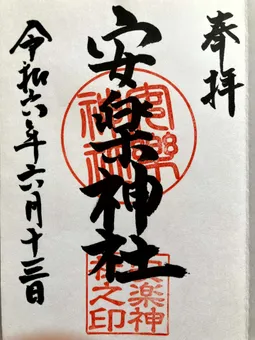 奉拝
安楽神社
安樂神社
安楽神
社之印
令和六年六月十三日